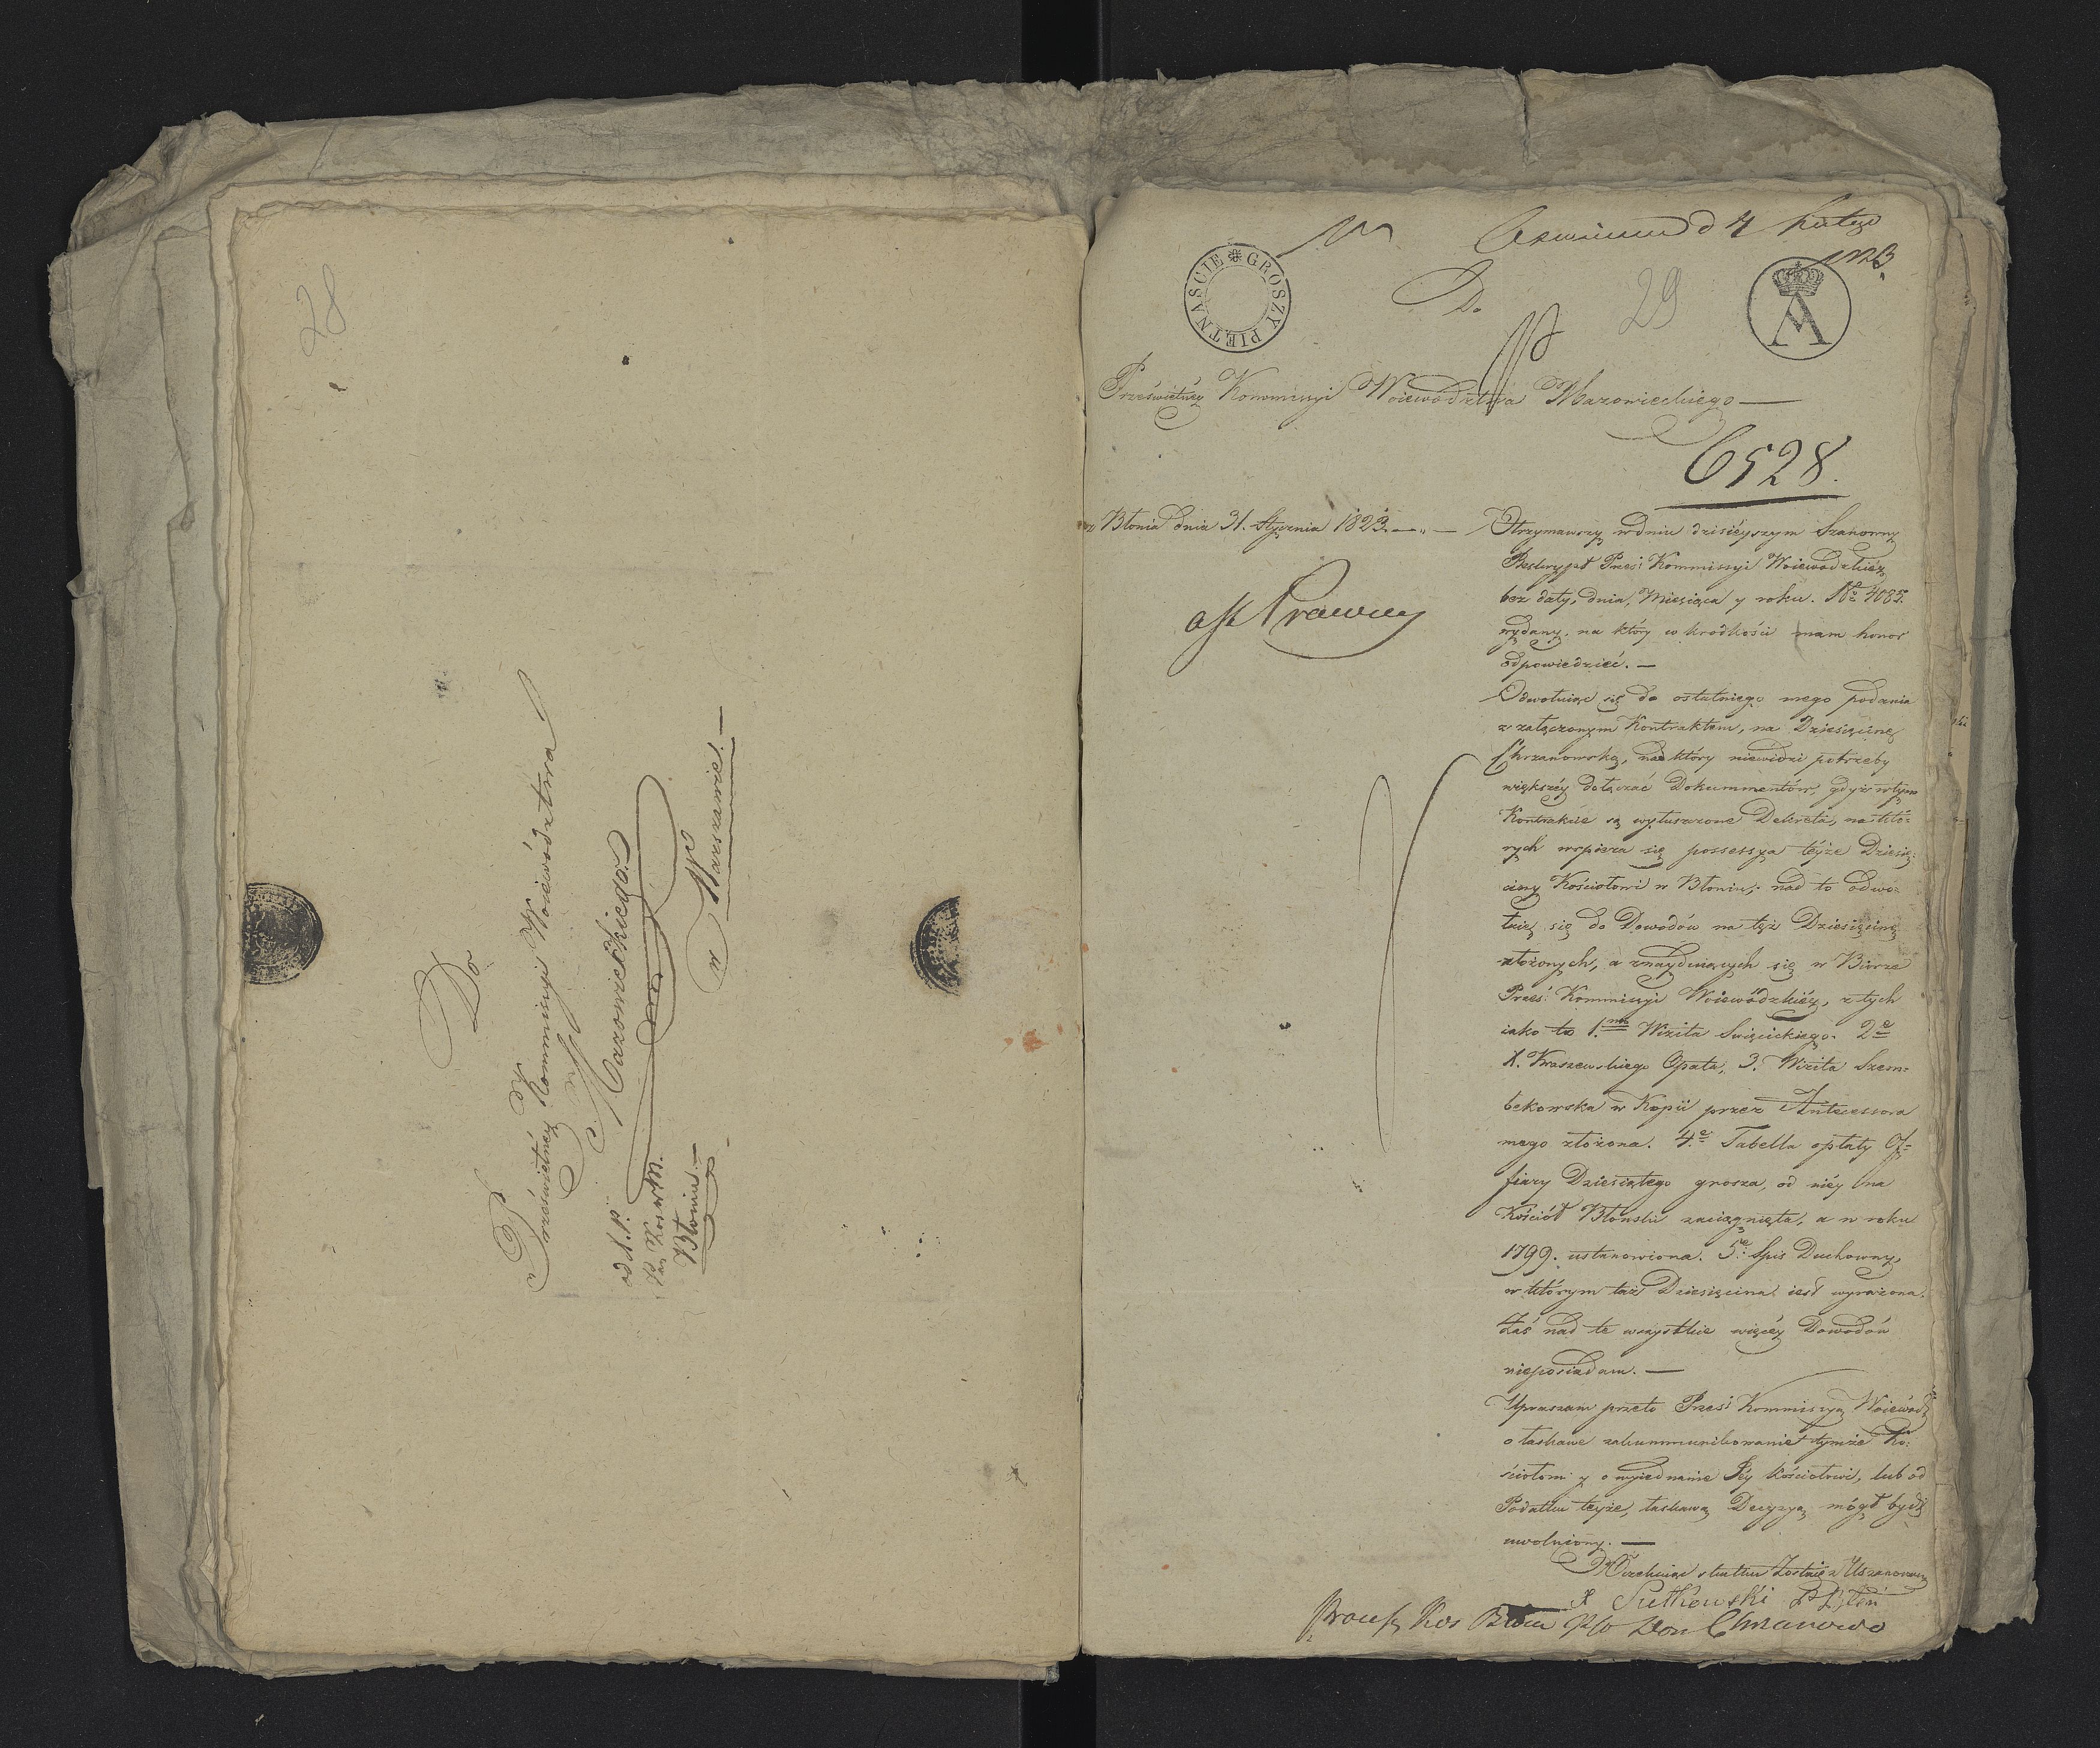 28
Do
Prześwietnéy Kommissyi Woiewództwa
Mazowieckiego
w Warszawie. —
od X. P.
Błoniu. —
d 4 Lutego
1823
PIĘTNAŚCIE GROSZY
Do
29
A
Prześwietnéy Kommissyi Woiewództwa Mazowieckiego —
6528.
z Błonia dnia 31. Stycznia 1823. —„—
Prawny
Otrzymawszy w dniu dzisieyszym Szanowny
Reskrypt Prześ: Kommissyi Woiewódzkiéy,
bez daty, dnia, Miesiąca y roku. No 4085.
wydany, na który w krótkości mam honor
odpowiedzieć. —
Odwołuiąc się do ostatniego mego podania
z załączonym Kontraktem, na Dziesięcinę
Chrzanowską, nad który niewidzi potrzeby
większéy dołączać Dokummentów, gdyż w tym
Kontrakcie są wyłuszczone Dekreta, na któ:
rych wspiera się possessya teyże Dziesię:
ciny Kościołowi w Błoniu; nad to odwo:
łuię się do Dowodów na tęż Dziesięcinę
złożonych, a znayduiących się w Biórze
Prześ: Kommissyi Woiewódzkiéy, z tych
iako to 1mo Wizita Święcickiego. 2e
X. Kraszewskiego Opata, 3. Wizita Szem:
bekowska w Kopii przez Antecessora
mego złożona. 4e Tabella opłaty Of:
fiary Dziesiątego grosza, od niéy na
Kościół Błonski zaciągnięta, a w roku
1799. ustanowiona. 5e Spis Duchowny,
w którym taż Dziesięcina iest wyrażona.
Zaś nad te wszystkie więcéy Dowodów
nieposiadam. —
Upraszam przeto Prześ: Kommissyą Woiewódz
o łaskawe zakommunikowanie tymże Ko:
ściołowi y o wyiednanie Jéy Kościołowi, lub od
Podatku teyże, łaskawą Decyzyą mógł bydź
uwolniony. —
skutku Zostaię z Uszanowan
X Sutkowski
Kos Błoń Chrzanowo